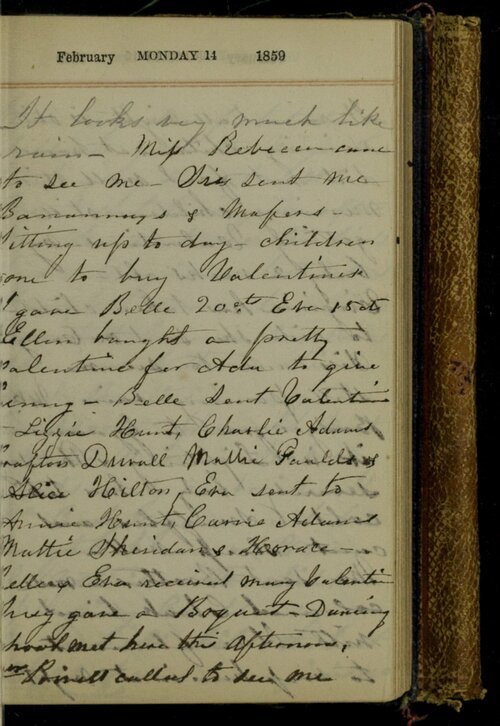 February MONDAY 14 1859
It looks very much like
rain - Miss Rebecca came
to see me - sent me
Bananny s & Mapers -
itting up to day - children
one to buy Valentines
I gave Belle 20 ct Eva 15 ct
Ellen bought a pretty
alentine for Ada to give
- Belle sent Valentin
- Lizzie Hunt, Charlie Adams
rafton Duvall Mattie
Alice Hilton, Eva sent to
Annie Hunt, Carrie Adams
Mattie Sheridan & Horace -
elle & Eva received many Valentin
hey gave a Boquet - Dancing
hool met here this afternoon,
called to see me